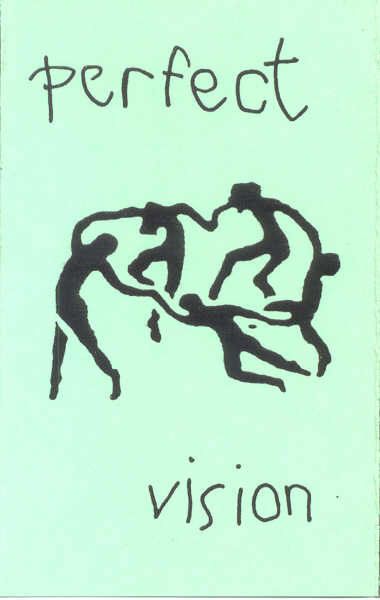 perfect
vision